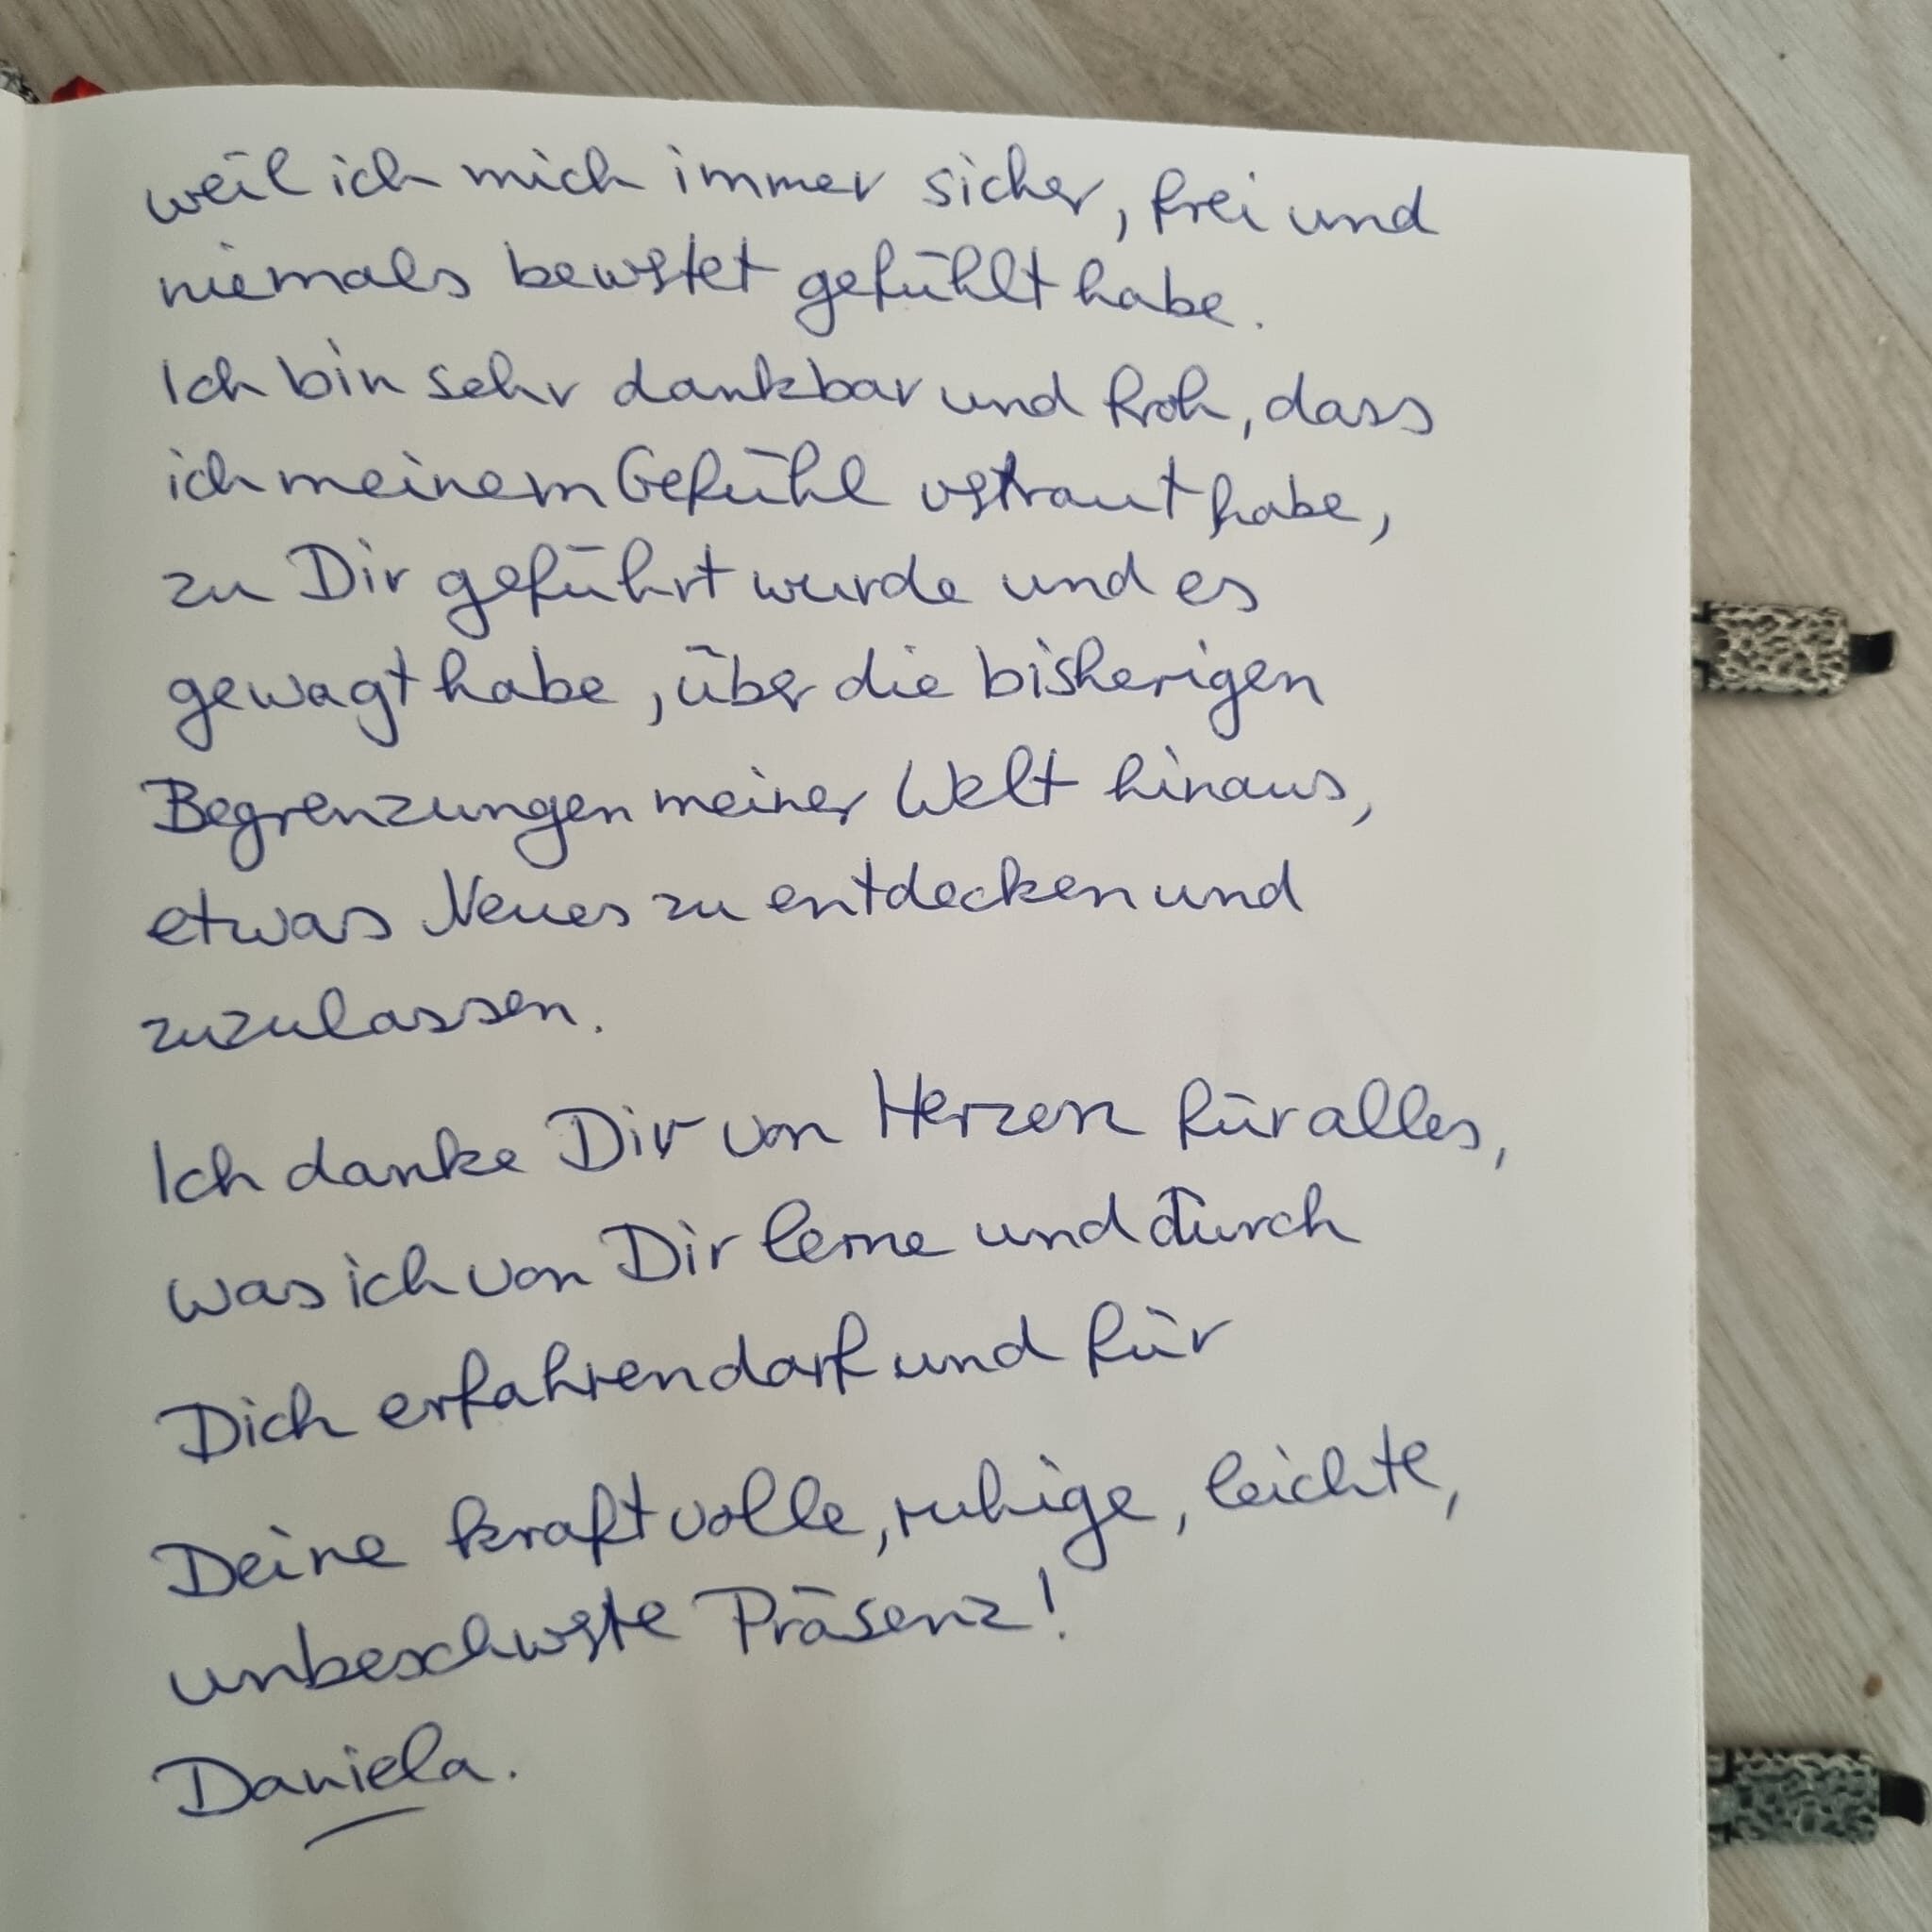 weil ich mich immer sicher, frei und
niemals bewertet gefühlt habe.
Ich bin sehr dankbar und froh, dass
ich meinem Gefühl vertraut habe,
zu Dir geführt wurde und es
gewagt habe, über die bisherigen
Begrenzungen meiner Welt hinaus,
etwas Neues zu entdecken und
zuzulassen.
Ich danke Dir von Herzen für alles,
was ich von Dir lerne und durch
Dich erfahren darf und für
Deine kraftvolle, ruhige, leichte,
unbeschwerte Präsenz!
Daniela.